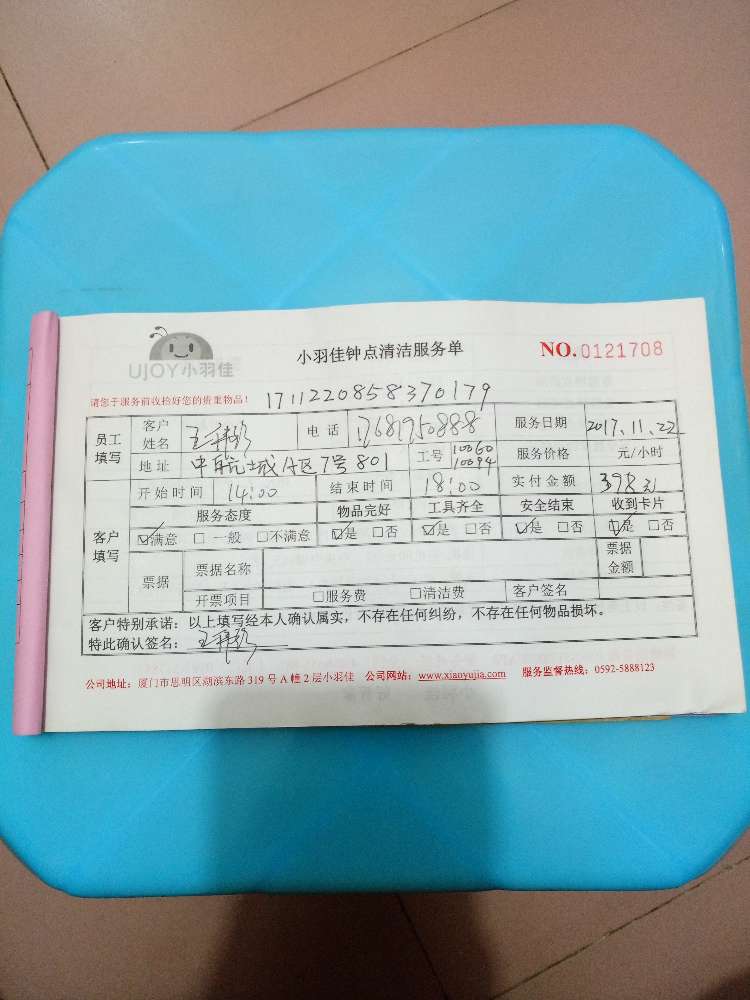 UJOY小羽佳
小羽佳钟点清洁服务单 NO.0121708
请您于服务前收拾好您的贵重物品! 1711220858370179
员工填写 客户姓名 王 电话 服务日期 2017.11.22
地址 中航城A区7号801 工号 10060 10094 服务价格 元/小时
客户填写 开始时间 14:00 结束时间 18:00 实付金额 398元
服务态度 物品完好 工具齐全 安全结束 收到卡片
☑满意 □一般 □不满意 ☑是 □否 ☑是 □否 ☑是 □否 ☑是 □否
票据 票据名称 票据金额
开票项目 □服务费 □清洁费 客户签名
客户特别承诺：以上填写经本人确认属实，不存在任何纠纷，不存在任何物品损坏。
特此确认签名： 王
公司地址：厦门市思明区湖滨东路319号A幢2层小羽佳 公司网站：www.xiaoyujia.com 服务监督热线：0592-5888123